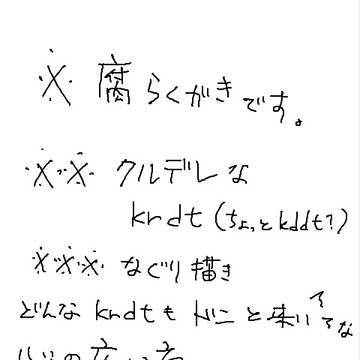 ※ 腐らくがきです。
※※ クルデレな
krdt (ちょっとkddt?)
※※※ なぐり描き
どんなkrdtもドンと来いってな
心の広い方